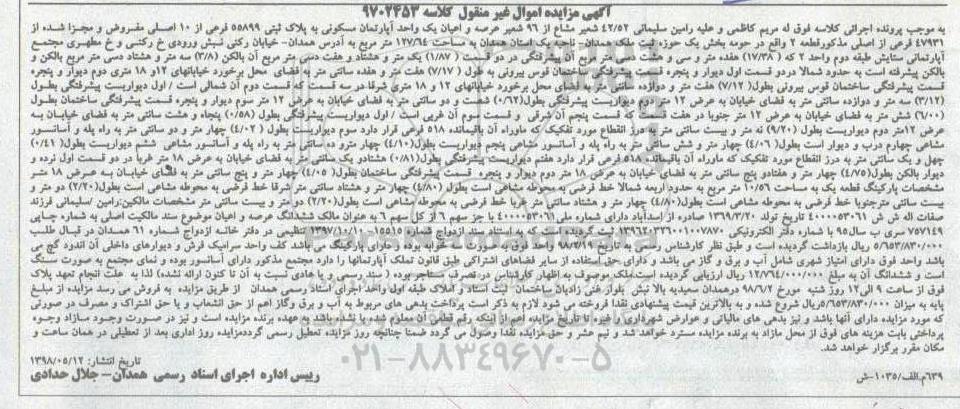 آگهی مزایده اموال غیر منقول کلاسه ۹۷۰۲۴۵۳
به موجب پرونده اجرائی کلاسه فوق له مریم کاظمی و علیه رامین سلیمانی ۴۲/۵۲ شعیر مشاع از ۹۶ شعیر عرصه و اعیان یک واحد آپارتمان مسکونی به پلاک ثبتی ۵۵۸۹۹ فرعی از ۱۰ اصلی مفروض و مجزا شده از
۴۷۹۳۱ فرعی از اصلی مذکور قطعه ۲ واقع در حومه بخش یک حوزه ثبت ملک همدان - ناحیه یک استان همدان به مساحت ۱۲۷/۶۴ متر مربع به آدرس همدان- خیابان رکنی نبش ورودی خ رکنی و خ مطهری مجتمع
آپارتمانی ستایش طبقه دوم واحد ۲ که (۱۷/۳۸) هفده متر و سی و هشت دسی متر مربع آن پیشرفتگی در دو قسمت (۱/۸۷) یک متر و هشتاد و هفت دسی متر مربع آن بالکن (۳/۸) سه متر و هشتاد دسی متر مربع بالکن و
بالکن پیشرفته است به حدود شمالا در دو قسمت اول دیوار و پنجره قسمت پیشرفتگی ساختمان قوس بیرونی به طول (۷/۱۷) هفت متر و هفده سانتی متر به فضای محل برخورد خیابانهای ۱۲ و ۱۸ متری دوم دیوار و پنجره
قسمت پیشرفتگی ساختمان قوس بیرونی بطول (۷/۱۲) هفت متر و دوازده سانتی متر به فضای محل برخورد خیابانهای ۱۲ و ۱۸ متری شرقا در سه قسمت که قسمت دوم آن شمالی است / اول دیواریست پیشرفتگی بطول
(۳/۱۲) سه متر و دوازده سانتی متر به فضای خیابان به عرض ۱۲ متر دوم دیواریست پیشرفتگی بطول (۰/۶۲) شصت و دو سانتی متر به فضای خیابان به عرض ۱۲ متر سوم دیوار و پنجره قسمت پیشرفتگی ساختمان بطول
(۶/۰۰) شش متر به فضای خیابان به عرض ۱۲ متر جنوبا در هفت قسمت که قسمت پنجم آن شرقی و قسمت سوم آن غربی است / اول دیواریست پیشرفتگی بطول (۰/۵۸) پنجاه و هشت سانتی متر به فضای خیابان به
عرض ۱۲متر دوم دیواریست بطول (۹/۲۰) نه متر و بیست سانتی متر به درز انقطاع مورد تفکیک که ماوراء آن باقیمانده ۵۱۸ فرعی قرار دارد سوم دیواریست بطول (۴/۰۲) چهار متر و دو سانتی متر به راه پله و آسانسور
مشاعی چهارم درب و دیوار است بطول (۴/۰۶) چهار متر و شش سانتی متر به راه پله و آسانسور مشاعی پنجم دیواریست بطول (۴/۱۰) چهار مترو ده سانتی متر به راه پله و آسانسور مشاعی ششم دیواریست بطول (۰/۴۱)
چهل و یک سانتی متر به درز انقطاع مورد تفکیک که ماوراء آن باقیمانده ۵۱۸ فرعی قرار دارد هفتم دیواریست پیشرفتگی بطول (۰/۸۱) هشتادو یک سانتی متر به فضای خیابان به عرض ۱۸ متر غربا در دو قسمت اول نرده و
دیوار بالکن بطول (۴/۷۵) چهار متر و هفتادو پنج سانتی متر به فضای خیابان به عرض ۱۸ متر دوم دیوار و پنجره قسمت پیشرفتگی ساختمان بطول (۴/۰۵) چهار متر و پنج سانتی متر به فضای خیابان به عرض ۱۸ متر
مشخصات پارکینگ قطعه یک به مساحت ۱۰/۵۶ متر مربع به حدود اربعه شمالا خط فرضی به محوطه مشاعی است بطول (۴/۸۰) چهار متر و هشتاد سانتی متر شرقا خط فرضی به محوطه مشاعی است بطول (۲/۲۰) دو متر و
بیست سانتی مترجنوبا خط فرضی به محوطه مشاعی است بطول (۴/۸۰) چهار متر و هشتاد سانتی متر غربا خط فرضی به محوطه مشاعی است بطول (۲/۲۰) دو متر و بیست سانتی متر مشخصات مالکین:رامین /سلیمانی فرزند
صفات اله ش ش ۴۰۰۰۰۵۳۰۶۱ تاریخ تولد ۱۳۶۹/۳/۲۰ صادره از اسدآباد دارای شماره ملی ۴۰۰۰۰۵۳۰۶۱ با جز سهم ۶ از کل سهم ۶ به عنوان مالک ششدانگ عرصه و اعیان موضوع سند مالکیت اصلی به شماره چاپی
۷۵۷۱۴۹ سری ب سال ۹۵ با شماره دفتر الکترونیکی ۱۳۹۶۲۰۳۲۶۰۰۱۰۰۷۸۷۰ ثبت گردیده است. که به استناد سند ازدواج شماره ۱۵۵۱۵ - ۱۳۹۷/۱۰/۱۰ تنظیمی در دفتر خانه ازدواج شماره ۶۱ همدان در قبال طلب
۵/۶۵۳/۸۳۰/۰۰۰ ریال بازداشت گردیده است و طبق نظر کارشناس رسمی به تاریخ ۹۸/۲/۱۹ واحد فوق به صورت آپارتمانه بوده و دارای پارکینگ می باشد کف واحد سرامیک فرش و دیوارهای داخلی آن اندود گچ می
باشد واحد فوق دارای امتیاز شهری شامل آب و برق و گاز می باشد و دارای حق استفاده از سایر فضاهای اشتراکی طبق قانون تملک آپارتمانها را دارد مجتمع مذکور دارای آسانسور بوده و نمای مجتمع به صورت سنگ
است و ششدانگ آن به مبلغ ۱۲/۷۶۴/۰۰۰/۰۰۰ ریال ارزیابی گردیده است.ملک موصوف به اظهار کارشناس در تصرف مستاجر بوده ( سند رسمی و یا عادی نسبت به آن تا کنون ارائه نشده) لذا به علت انجام تعهد پلاک
فوق از ساعت ۹ الی۱۲ روز شنبه مورخ ۹۸/۶/۲ درهمدان سعیدیه بالا نبش بلوار غنی زادیان ساختمان ثبت اسناد و املاک طبقه اول واحد اجرای اسناد رسمی همدان از طریق مزایده به فروش می رسد مزایده از مبلغ
پایه به میزان ۵/۶۵۳/۸۳۰/۰۰۰ریال شروع شده و به بالاترین قیمت پیشنهادی نقدا فروخته می شود لازم به ذکر است پرداخت بدهی های مربوط به آب و برق وگاز اعم از حق انشعاب و یا حق اشتراک و مصرف در صورتی
که مورد مزایده دارای آنها باشد و نیز بدهی های مالیاتی و عوارض شهرداری و غیره تا تاریخ مزایده اعم از اینکه رقم قطعی آن معلوم شده یا نشده باشد به عهده برنده مزایده است و نیز در صورت وجود مازاد وجوه
پرداختی بابت هزینه های فوق از محل مازاد به برنده مزایده مسترد خواهد شد و نیم عشر و حق مزایده نقدا وصول می گردد ضمنا چنانچه روز مزایده تعطیل رسمی گرددمزایده روز اداری بعد از تعطیلی در همان ساعت و
مکان مقرر برگزار خواهد شد.
تاریخ انتشار: ۱۳۹۸/۰۵/۱۲
۶۳۹م.الف/۱۰۳۵-ش
رییس اداره اجرای اسناد رسمی همدان- جلال حدادی
۰۲۱-۸۸۳۴۹۶۷۰-۵